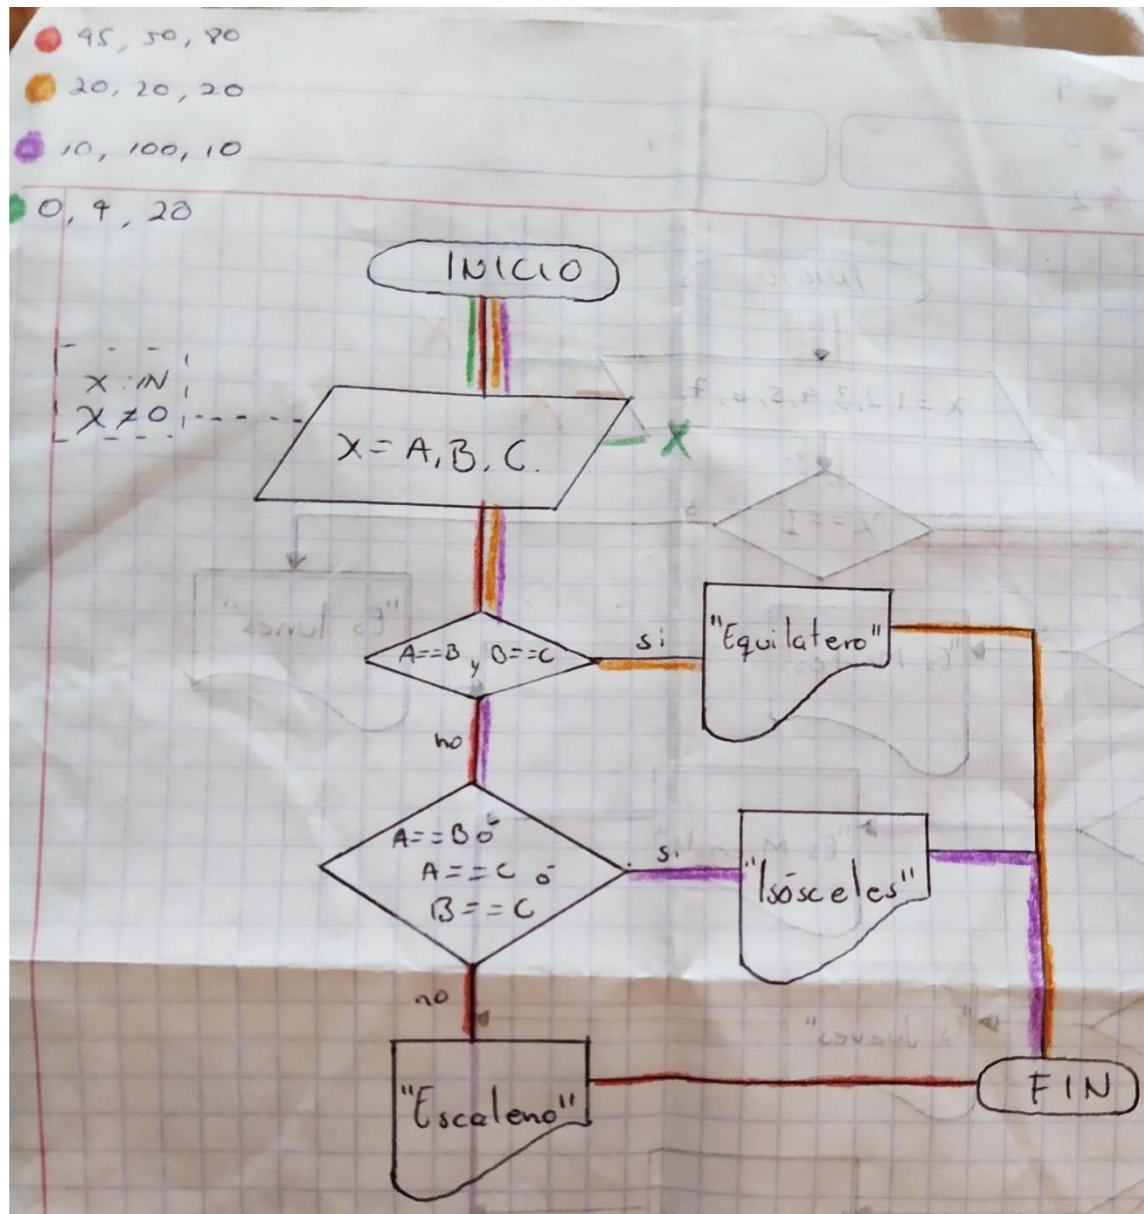 45, 50, 80
20, 20, 20
10, 100, 10
0, 4, 20
INICIO
X : IN
X ≠ 0
X = A, B, C.
X
A==B y B==C
si
"Equilatero"
no
A==B ó
A==C ó
B==C
si
"Isósceles"
no
"Escaleno"
FIN